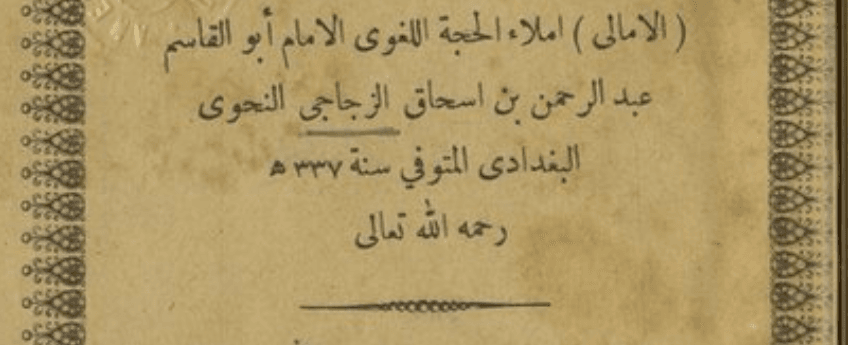 ( الامالى ) املاء الحجة اللغوى الامام أبو القاسم
عبد الرحمن بن اسحاق الزجاجى النحوى
البغدادى المتوفي سنة ٣٣٧ ھ
رحمه الله تعالى